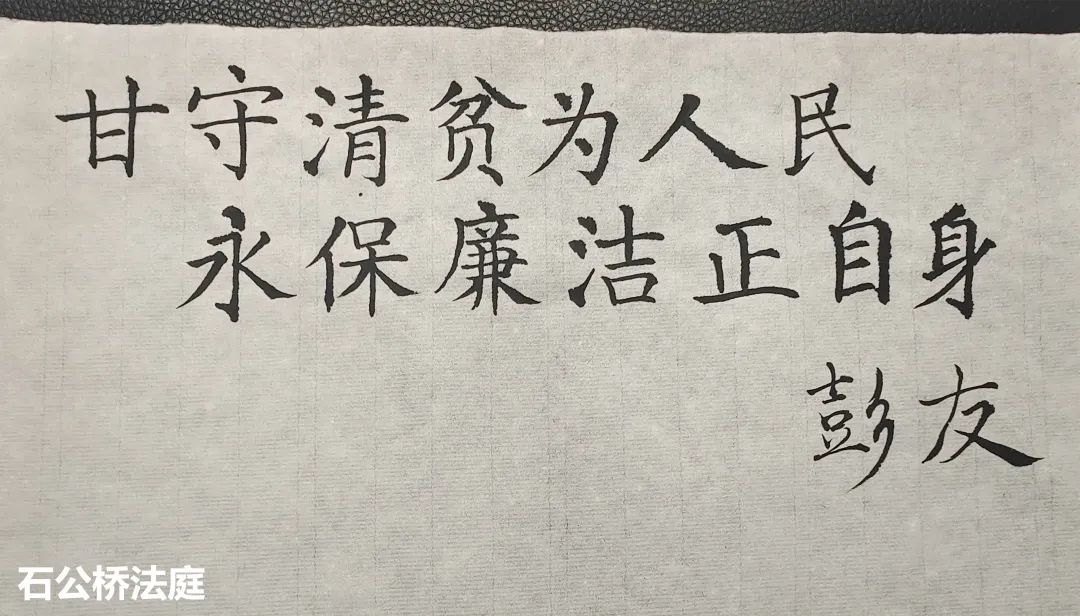 甘守清贫为人民
永保廉洁正自身
彭友
石公桥法庭